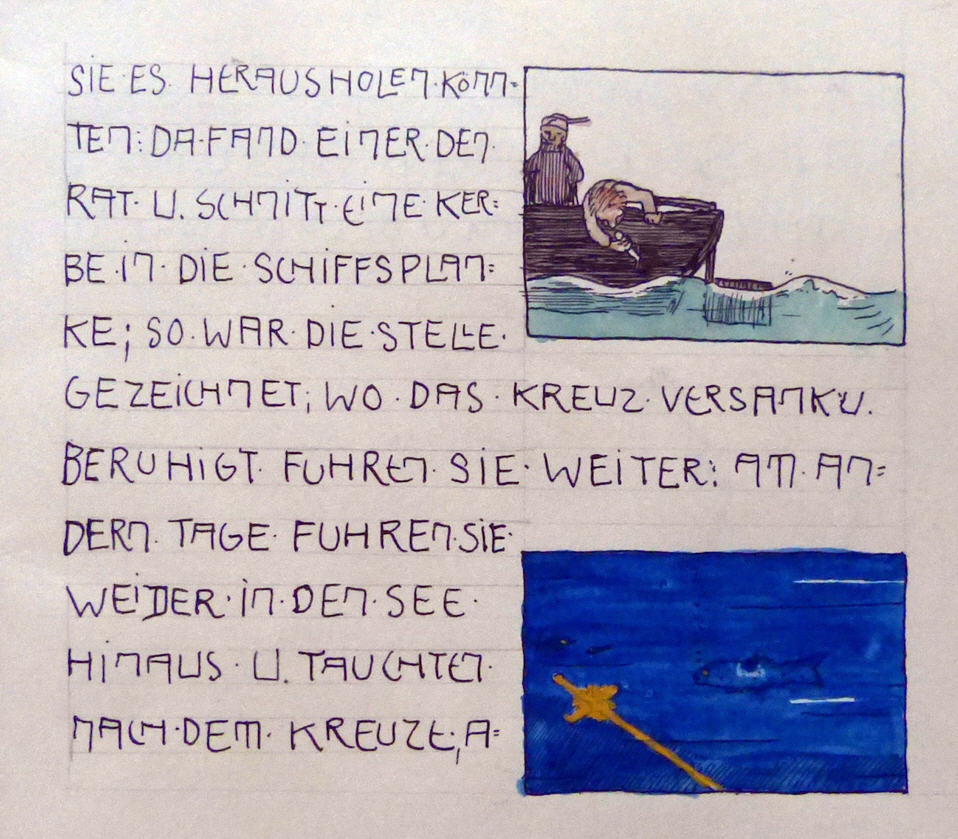 SIE·ES·HERAUSHOLEN·KÖNN=
TEN: DA·FAND EINER·DEN·
RAT· U. SCHNITT·EINE KER=
BE·IN· DIE·SCHIFFSPLAN=
KE; SO·WAR·DIE·STELLE·
GEZEICHNET; WO·DAS·KREUZ·VERSANK U.
BERUHIGT FUHREN·SIE·WEITER: AM·AN=
DERN·TAGE·FUHREN·SIE·
WEIDER·IN·DEN·SEE·
HINAUS·U. TAUCHTEN·
NACH·DEM·KREUZE; A=